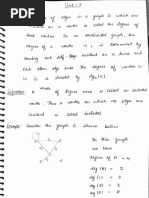 Unit-2
of edges in a graph G which are
incident on a vertex is called the degree of
that vertex. In an undirected graph, the
degree of a vertex is determined by
counting each self-loop incident on v twice and
each other edge once. The degree of vertex v
in G is denoted by deg
A vertex of degree zero is called an isolated
vertex. Thus a vertex on which no edges are
incident is called isolated
Example: Consider the graph G shown below
In this graph
we have
degree of A = 4
deg (B) = 2
deg (C) = 3
deg (D) = 1
deg (E) = 0